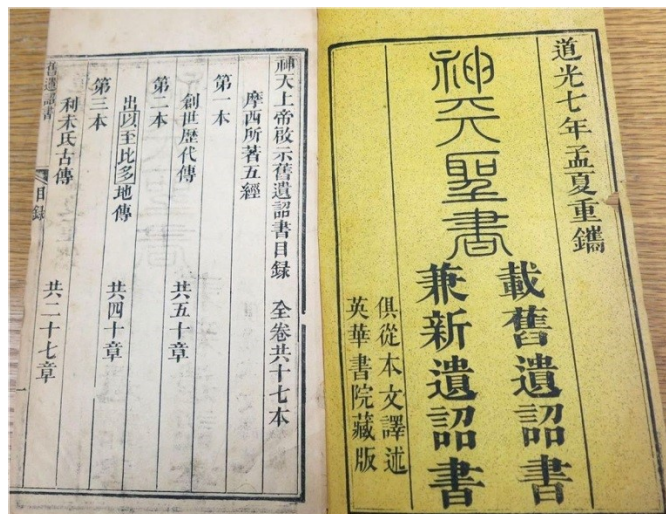 道光七年孟夏重鐫
神天聖書
載舊遺詔書
兼新遺詔書
俱從本文譯述
英華書院藏版
神天上帝啟示舊遺詔書目錄 全卷共十七本
摩西所著五經
第一本
創世歷代傳 共五十章
第二本
出以至比多地傳 共四十章
第三本
利未氏古傳 共二十七章
舊遺詔書 目錄